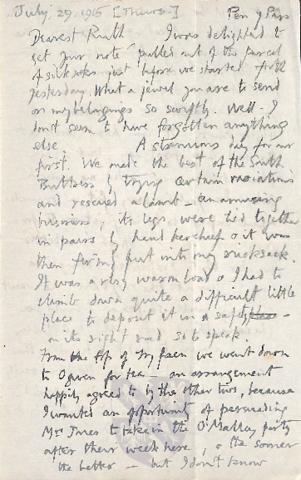 July, 29. 1915 [Thurs.] Pen y Pass
Dearest Ruth I was delighted to
get your note pulled out of the parcel
of just before we started forth
yesterday. What a jewel you are to send
on my belongings so swiftly. Well - I
don't seem to have forgotten anything
else. A strenuous day for our
first. We made the best of the South
Buttress by trying certain variations
and rescued a lamb - an amusing
business, its legs were tied together
in pairs by handkerchief & it was
then firmly put into my rucksack.
It was a very warm load & I had to
climb down quite a difficult little
place to deposit it in a safe place -
on its right end so to speak.
From the top of Tryfaen we went down
to Ogwen for tea - an arrangement
happily agreed to by the other two, because
I wanted an opportunity of persuading
Mrs Jones to take in the O'Malley party
after their week here, & the sooner
the better - but I don't know